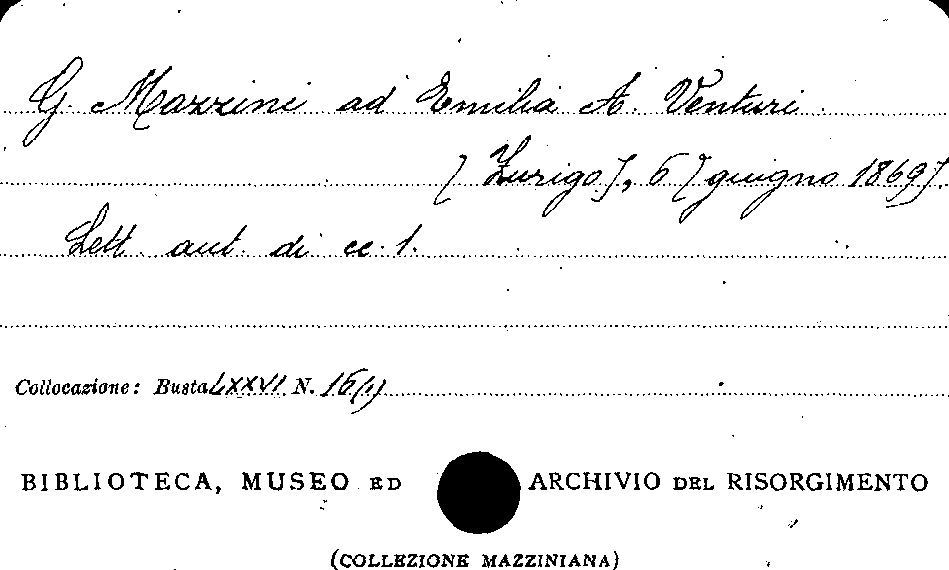 G. Mazzini ad Emilia A. Venturi
[Zurigo], 6 [giugno 1869].
Lett. aut. di cc. 1.
Collocazione: Busta LXXVI N. 16(1)
BIBLIOTECA, MUSEO ED ARCHIVIO DEL RISORGIMENTO
(COLLEZIONE MAZZINIANA)